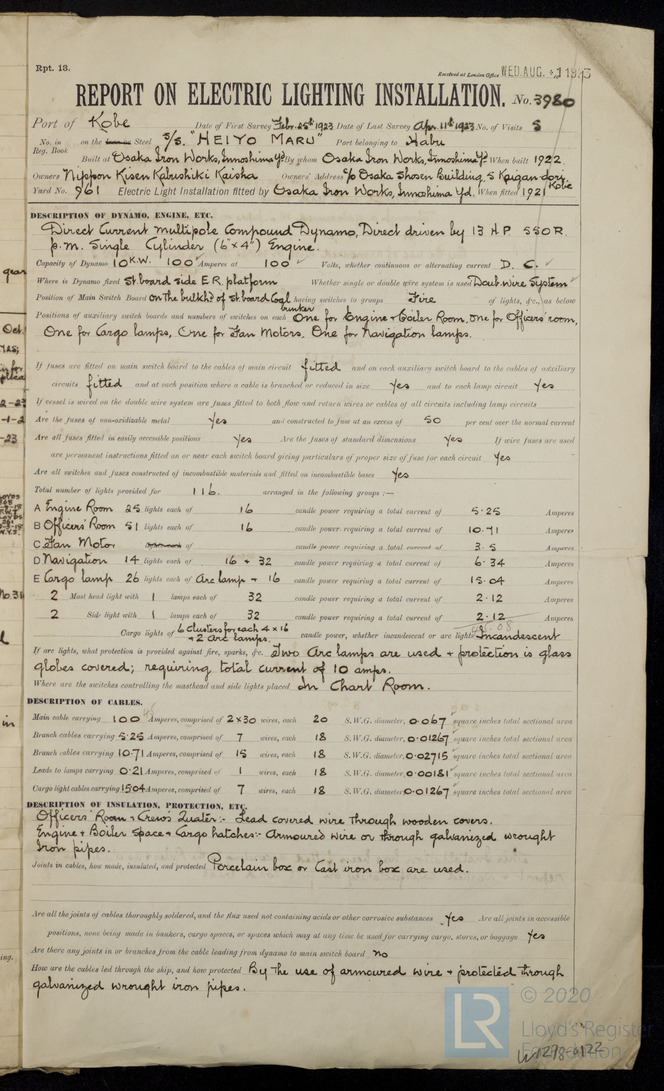 Rpt. 13.
Received at London Office WED. AUG. 1923
REPORT ON ELECTRIC LIGHTING INSTALLATION. No. 3980
Port of Kobe Date of First Survey Feb. 25th 1923 Date of Last Survey Apr. 11th 1923 No. of Visits 5
No. in Reg. Book on the Iron Steel S/S. "HEIYO MARU" Port belonging to Habu
Built at Osaka Iron Works, Innoshima Yd. By whom Osaka Iron Works, Innoshima Yd. When built 1922
Owners Nippon Kisen Kabushiki Kaisha Owners' Address c/o Osaka Shosen Building, 5 Kaigandori, Kobe
Yard No. 961 Electric Light Installation fitted by Osaka Iron Works, Innoshima Yd. When fitted 1921
DESCRIPTION OF DYNAMO, ENGINE, ETC.
Direct Current multipole Compound Dynamo, Direct driven by 13 HP 550 R.
p. m. Single Cylinder (6" x 4") Engine.
Capacity of Dynamo 10 K.W. 100 Amperes at 100 Volts, whether continuous or alternating current D. C.
Where is Dynamo fixed St board side E.R. platform Whether single or double wire system is used Doub. wire System
Position of Main Switch Board on the bulkhd of st board Coal bunker having switches to groups Five of lights, &c., as below
Positions of auxiliary switch boards and numbers of switches on each One for Engine & Boiler Room, one for Officers' room,
One for Cargo lamps, One for Fan Motors, One for Navigation lamps.
If fuses are fitted on main switch board to the cables of main circuit fitted and on each auxiliary switch board to the cables of auxiliary
circuits fitted and at each position where a cable is branched or reduced in size Yes and to each lamp circuit Yes
If vessel is wired on the double wire system are fuses fitted to both flow and return wires or cables of all circuits including lamp circuits
Are the fuses of non-oxidizable metal Yes and constructed to fuse at an excess of 50 per cent over the normal current
Are all fuses fitted in easily accessible positions Yes Are the fuses of standard dimensions Yes If wire fuses are used
are permanent instructions fitted on or near each switch board giving particulars of proper size of fuse for each circuit Yes
Are all switches and fuses constructed of incombustible materials and fitted on incombustible bases Yes
Total number of lights provided for 116. arranged in the following groups :—
A Engine Room 25 lights each of 16 candle power requiring a total current of 5.25 Amperes
B Officers' Room 51 lights each of 16 candle power requiring a total current of 10.71 Amperes
C Fan Motor lights each of candle power requiring a total current of 3.5 Amperes
D Navigation 14 lights each of 16 + 32 candle power requiring a total current of 6.34 Amperes
E Cargo lamp 26 lights each of Arc lamp + 16 candle power requiring a total current of 15.04 Amperes
2 Mast head light with 1 lamps each of 32 candle power requiring a total current of 2.12 Amperes
2 Side light with 1 lamps each of 32 candle power requiring a total current of 2.12 Amperes
Cargo lights of 6 Clusters for each 4 x 16 + 2 Arc lamps. candle power, whether incandescent or arc lights Incandescent
If arc lights, what protection is provided against fire, sparks, &c. Two Arc lamps are used + protection is glass
globes covered; requiring total current of 10 amps.
Where are the switches controlling the masthead and side lights placed In Chart Room.
DESCRIPTION OF CABLES.
Main cable carrying 100 Amperes, comprised of 2 x 30 wires, each 20 S.W.G. diameter, 0.067 square inches total sectional area
Branch cables carrying 5.25 Amperes, comprised of 7 wires, each 18 S.W.G. diameter, 0.01267 square inches total sectional area
Branch cables carrying 10.71 Amperes, comprised of 15 wires, each 18 S.W.G. diameter, 0.02715 square inches total sectional area
Leads to lamps carrying 0.21 Amperes, comprised of 1 wires, each 18 S.W.G. diameter, 0.00181 square inches total sectional area
Cargo light cables carrying 15.04 Amperes, comprised of 7 wires, each 18 S.W.G. diameter, 0.01267 square inches total sectional area
DESCRIPTION OF INSULATION, PROTECTION, ETC.
Officers' Room + Crew's Quater :- Lead covered wire through wooden covers.
Engine + Boiler Space + Cargo hatches :- Armoured wire or through galvanized wrought
Iron pipes.
Joints in cables, how made, insulated, and protected Porcelain box or Cast iron box are used.
Are all the joints of cables thoroughly soldered, and the flux used not containing acids or other corrosive substances Yes Are all joints in accessible
positions, none being made in bunkers, cargo spaces, or spaces which may at any time be used for carrying cargo, stores, or baggage Yes
Are there any joints in or branches from the cable leading from dynamo to main switch board No
How are the cables led through the ship, and how protected By the use of armoured wire + protected through
galvanized wrought iron pipes.
© 2020
LR
Lloyd's Register
Foundation
W1298-0122